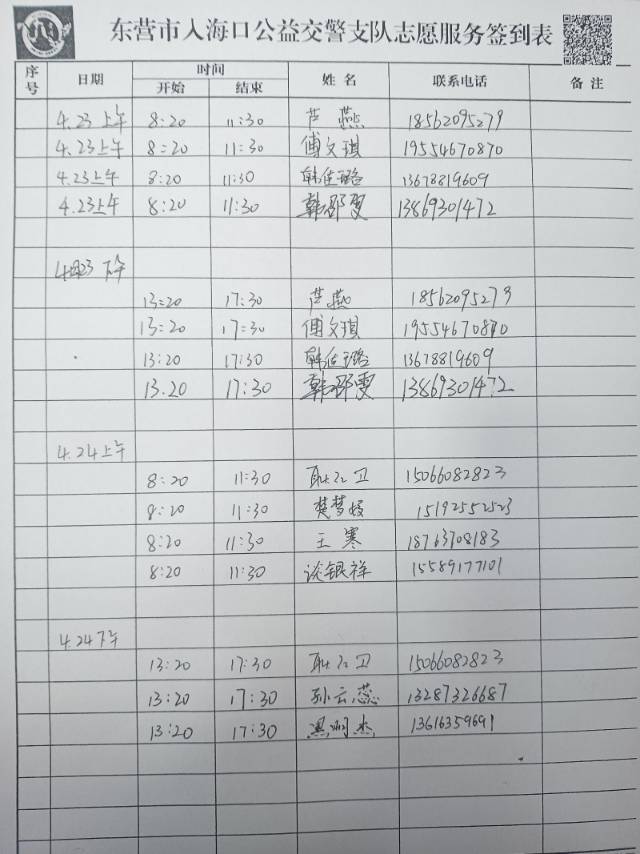 东营市入海口公益交警支队志愿服务签到表
序号 日期 时间 姓名 联系电话 备注
开始 结束
4.23上午 8:20 11:30 芦燕 18562095279
4.23上午 8:20 11:30 傅文琪 19554670870
4.23上午 8:20 11:30 韩佳璐 13678819609
4.23上午 8:20 11:30 韩邵雯 13869301472
4.23 下午
13:20 17:30 芦燕 18562095279
13:20 17:30 傅文琪 19554670870
13:20 17:30 韩佳璐 13678819609
13.20 17:30 韩邵雯 13869301472
4.24上午
8:20 11:30 耿红卫 15066082823
8:20 11:30 樊梦姣 15192552523
8:20 11:30 王寒 18763708183
8:20 11:30 谈银祥 15589177101
4.24下午
13:20 17:30 耿红卫 15066082823
13:20 17:30 孙云蕊 13287326687
13:20 17:30 13616359691